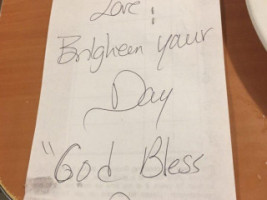 Love:
Brigheen your
Day
"God Bless